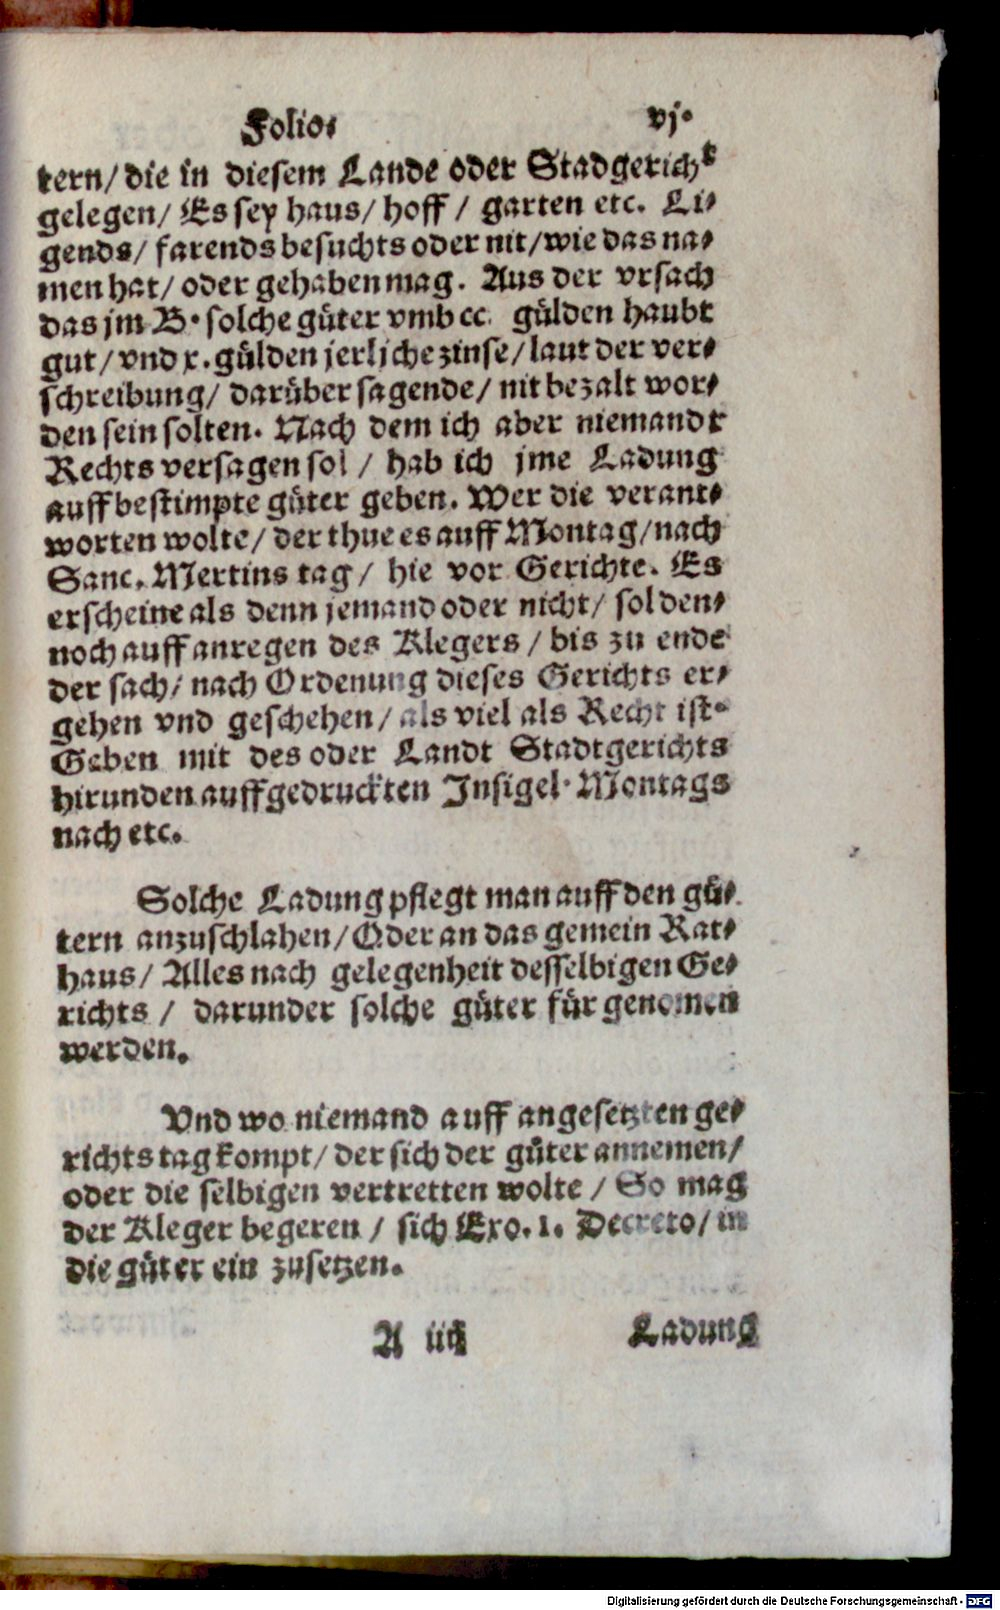 Folio. vj.
tern/ die in diesem Lande oder Stadgericht
gelegen/ Es sey haus/ hoff / garten etc. Li-
gends/ farends besuchts oder nit/ wie das na-
men hat/ oder gehaben mag. Aus der vrsach
das jm B. solche güter vmb cc. gülden haubt
gut/ vnd x. gülden jerljche zinse/ laut der ver-
schreibung/ darüber sagende/ nit bezalt wor-
den sein solten. Nach dem ich aber niemandt
Rechts versagen sol / hab ich jme Ladung
auff bestimpte güter geben. Wer die verant-
worten wolte/ der thue es auff Montag/ nach
Sanc. Mertins tag/ hie vor Gerichte. Es
erscheine als denn jemand oder nicht/ sol den-
noch auff anregen des Klegers / bis zu ende
der sach/ nach Ordenung dieses Gerichts er-
gehen vnd geschehen/ als viel als Recht ist.
Geben mit des oder Landt Stadtgerichts
hirunden auffgedruckten Insigel. Montags
nach etc.
Solche Ladung pflegt man auff den gü-
tern anzuschlahen/ Oder an das gemein Rat-
haus/ Alles nach gelegenheit desselbigen Ge-
richts / darunder solche güter für genomen
werden.
Vnd wo niemand auff angesetzten ge-
richts tag kompt/ der sich der güter annemen/
oder die selbigen vertretten wolte / So mag
der Kleger begeren / sich Exo. 1. Decreto/ in
die güter ein zusetzen.
A iij Ladung
Digitalisierung gefördert durch die Deutsche Forschungsgemeinschaft - DFG